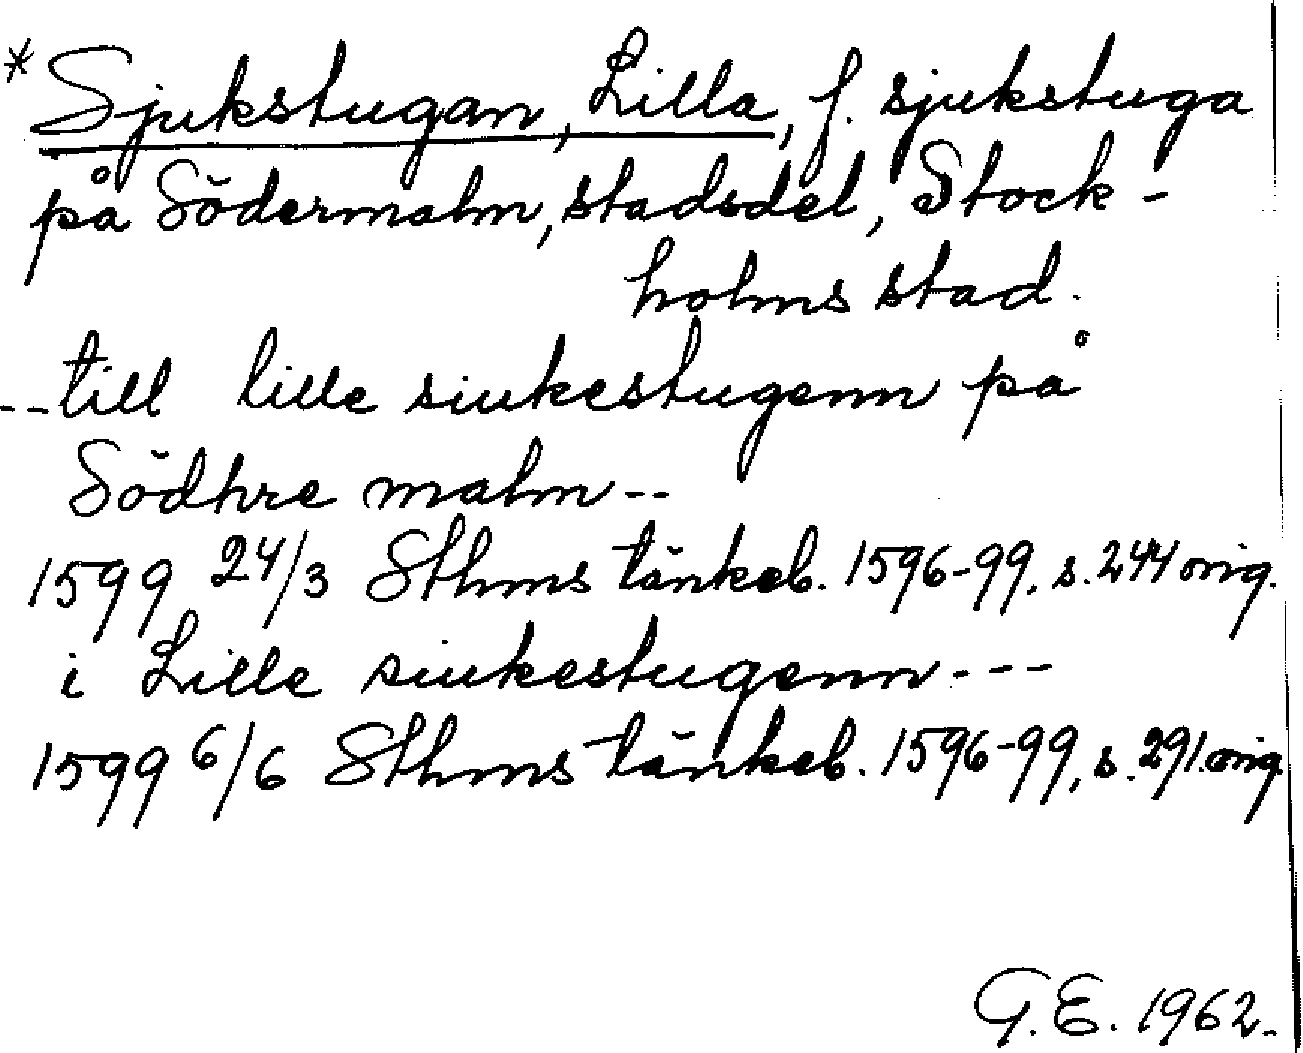 * Sjukstugan, Lilla, f. sjukstuga
på Södermalm, stadsdel, Stock-
holms stad.
-- till lille siukestugenn på
Södhre malm --
1599 24/3 Sthms tänkeb. 1596-99, s. 244 orig.
i Lille siukestugenn ---
1599 6/6 Sthms tänkeb. 1596-99, s. 291. orig.
G.E. 1962.